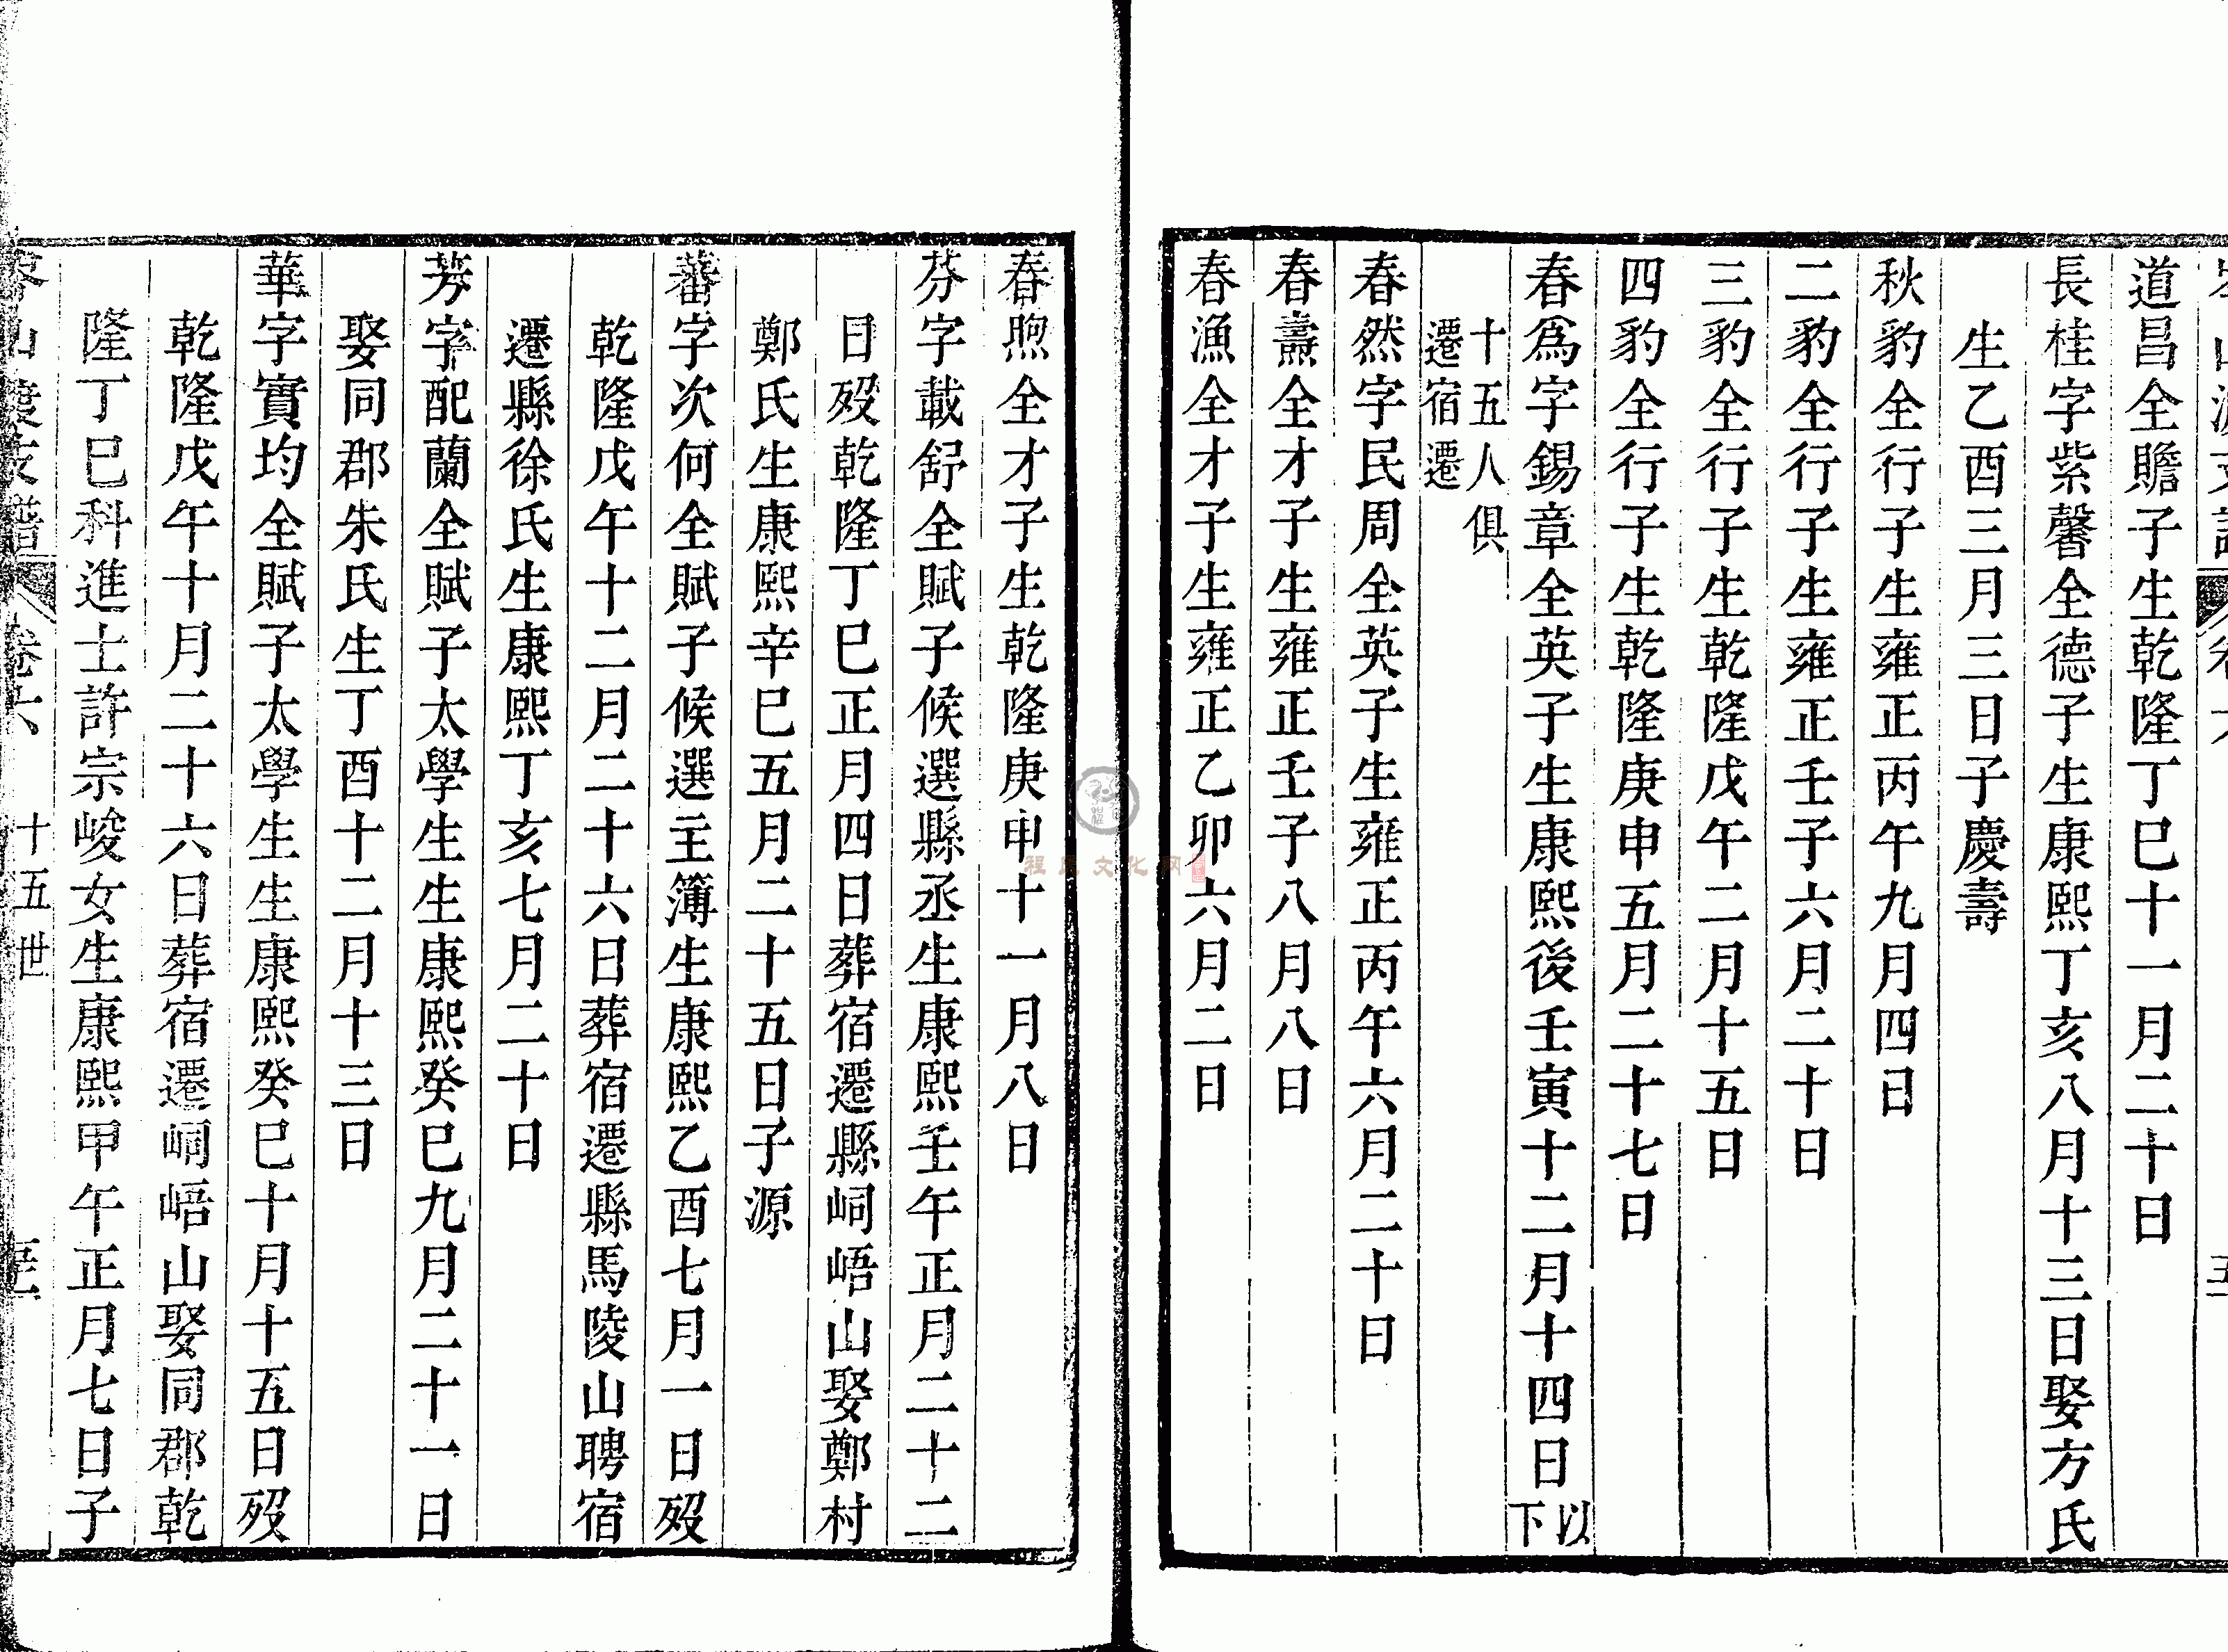 道昌全贍子生乾隆丁巳十一月二十日
長桂字紫馨全德子生康熙丁亥八月十三日娶方氏
生乙酉三月三日子慶壽
秋豹全行子生雍正丙午九月四日
二豹全行子生雍正壬子六月二十日
三豹全行子生乾隆戊午二月十五日
四豹全行子生乾隆庚申五月二十七日
春爲字錫章全英子生康熙後壬寅十二月十四日以下
十五人俱
遷宿遷
春然字民周全英子生雍正丙午六月二十日
春燾全才子生雍正壬子八月八日
春漁全才子生雍正乙卯六月二日
春煦全才子生乾隆庚申十一月八日
芬字載舒全賦子候選縣丞生康熙壬午正月二十二
日歿乾隆丁巳正月四日葬宿遷縣峒峿山娶鄭村
鄭氏生康熙辛巳五月二十五日子源
蕃字次何全賦子候選主簿生康熙乙酉七月一日歿
乾隆戊午十二月二十六日葬宿遷縣馬陵山聘宿
遷縣徐氏生康熙丁亥七月二十日
芳字配蘭全賦子太學生生康熙癸巳九月二十一日
娶同郡朱氏生丁酉十二月十三日
華字實均全賦子太學生生康熙癸巳十月十五日歿
乾隆戊午十月二十六日葬宿遷峒峿山娶同郡乾
隆丁巳科進士許宗峻女生康熙甲午正月七日子
山渡支譜 卷六 十五世
程氏文化网